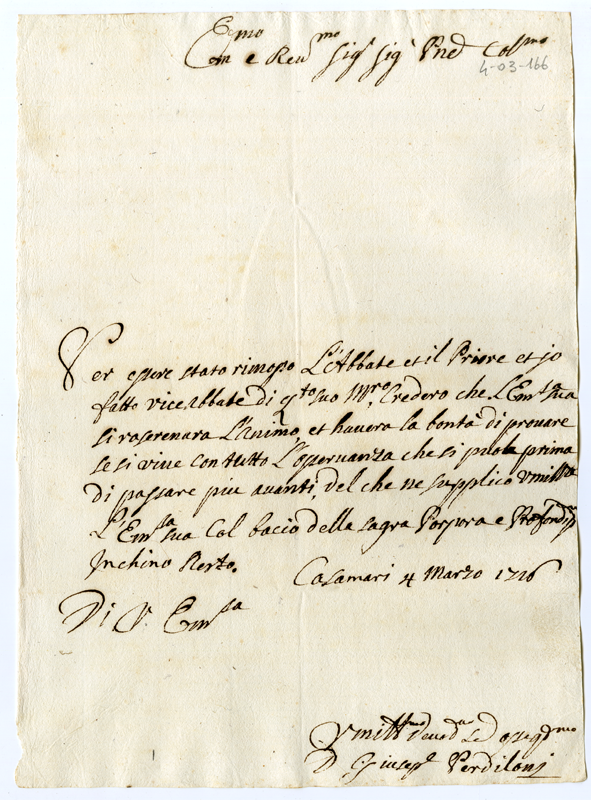 Em.mo e Reu.mo Sig.r Sig.r Pne Col.mo
4-03-166
Per essere stato rimosso L'Abbate et il Priore et jo
fatto vice Abbate di q.to suo Mro, Credero che L'Em.sa sua
si raserenara L'animo, et hauera la bontà di prouare
se si viue con tutto L'osseruanza che si puole prima
di passare piu auanti, del che ne supplico vmilte
L'Em.sa sua Col bacio della sagra Porpora e Profond.mo
Inchino Resto. Casamari 4 Marzo 1716
Di V. Em.sa
Vmill.mo Deuo.mo ed osseq.mo
D Giusepe Perdiloni